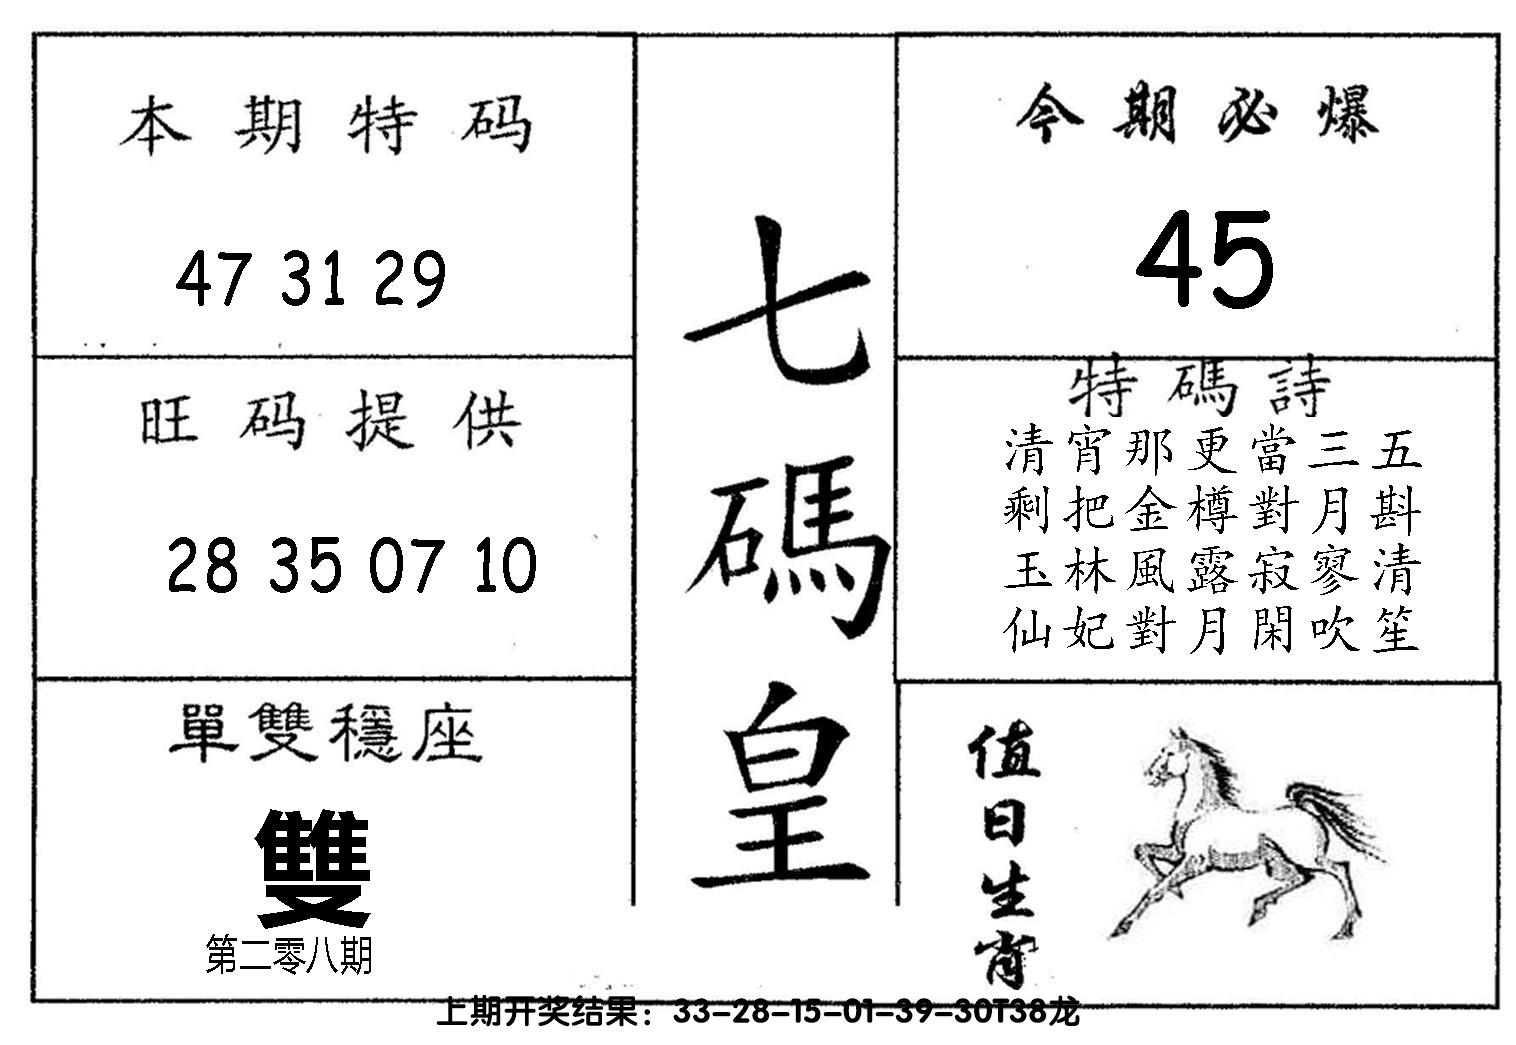 本期特码
47 31 29
旺码提供
28 35 07 10
單雙穩座
雙
第二零八期
七碼皇
今期必爆
45
特碼詩
清宵那更當三五
剩把金樽對月斟
玉林風露寂寥清
仙妃對月閑吹笙
值日生肖
上期开奖结果：33-28-15-01-39-30T38龙